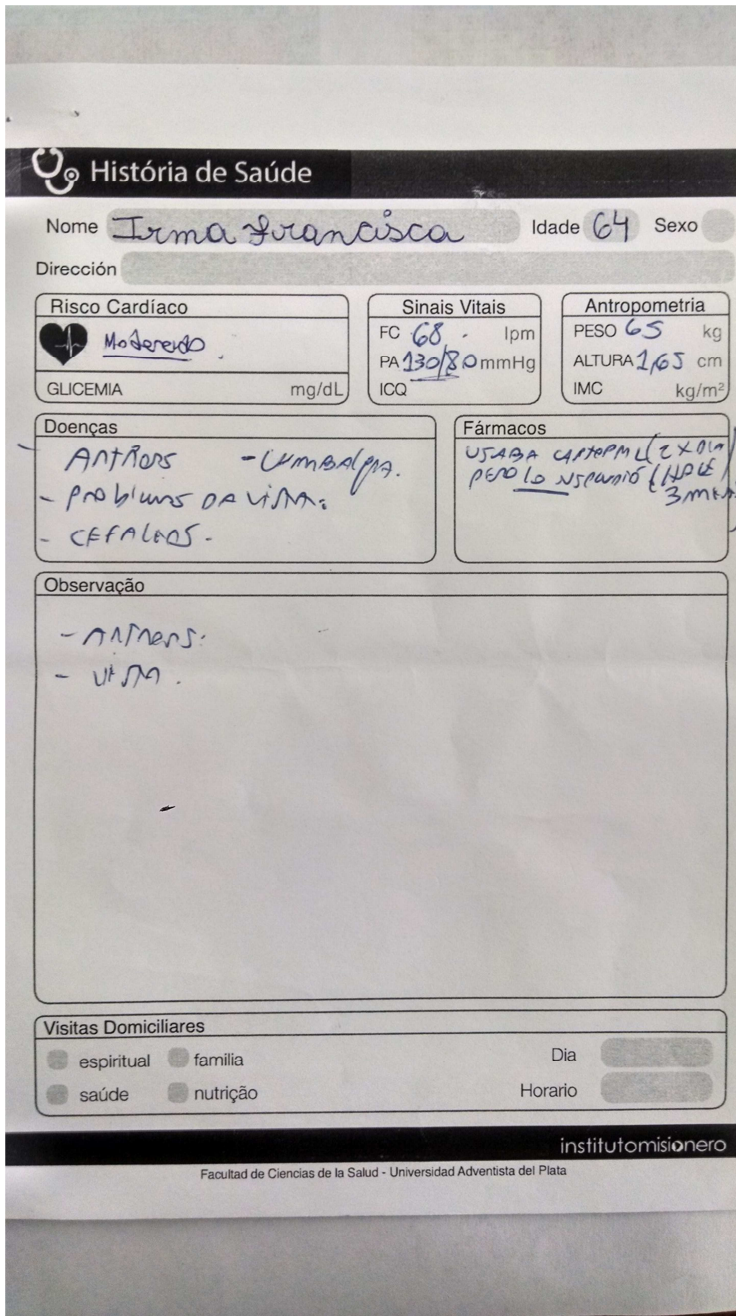 História de Saúde
Nome Irma Francisca Idade 64 Sexo
Dirección
Risco Cardíaco
Moderado.
GLICEMIA mg/dL
Sinais Vitais
FC 68. lpm
PA 130/80 mmHg
ICQ
Antropometria
PESO 65 kg
ALTURA 1,65 cm
IMC kg/m²
Doenças
- LUMBALGIA.
- PROBLEMAS DA VISTA.
- CEFALEAS.
Fármacos
USABA CAPTOPRIL (2 X DIA)
PERO LO SUSPENDIÓ (HACE
3
Observação
- VISTA.
Visitas Domiciliares
espiritual familia Dia
saúde nutrição Horario
institutomisionero
Facultad de Ciencias de la Salud - Universidad Adventista del Plata